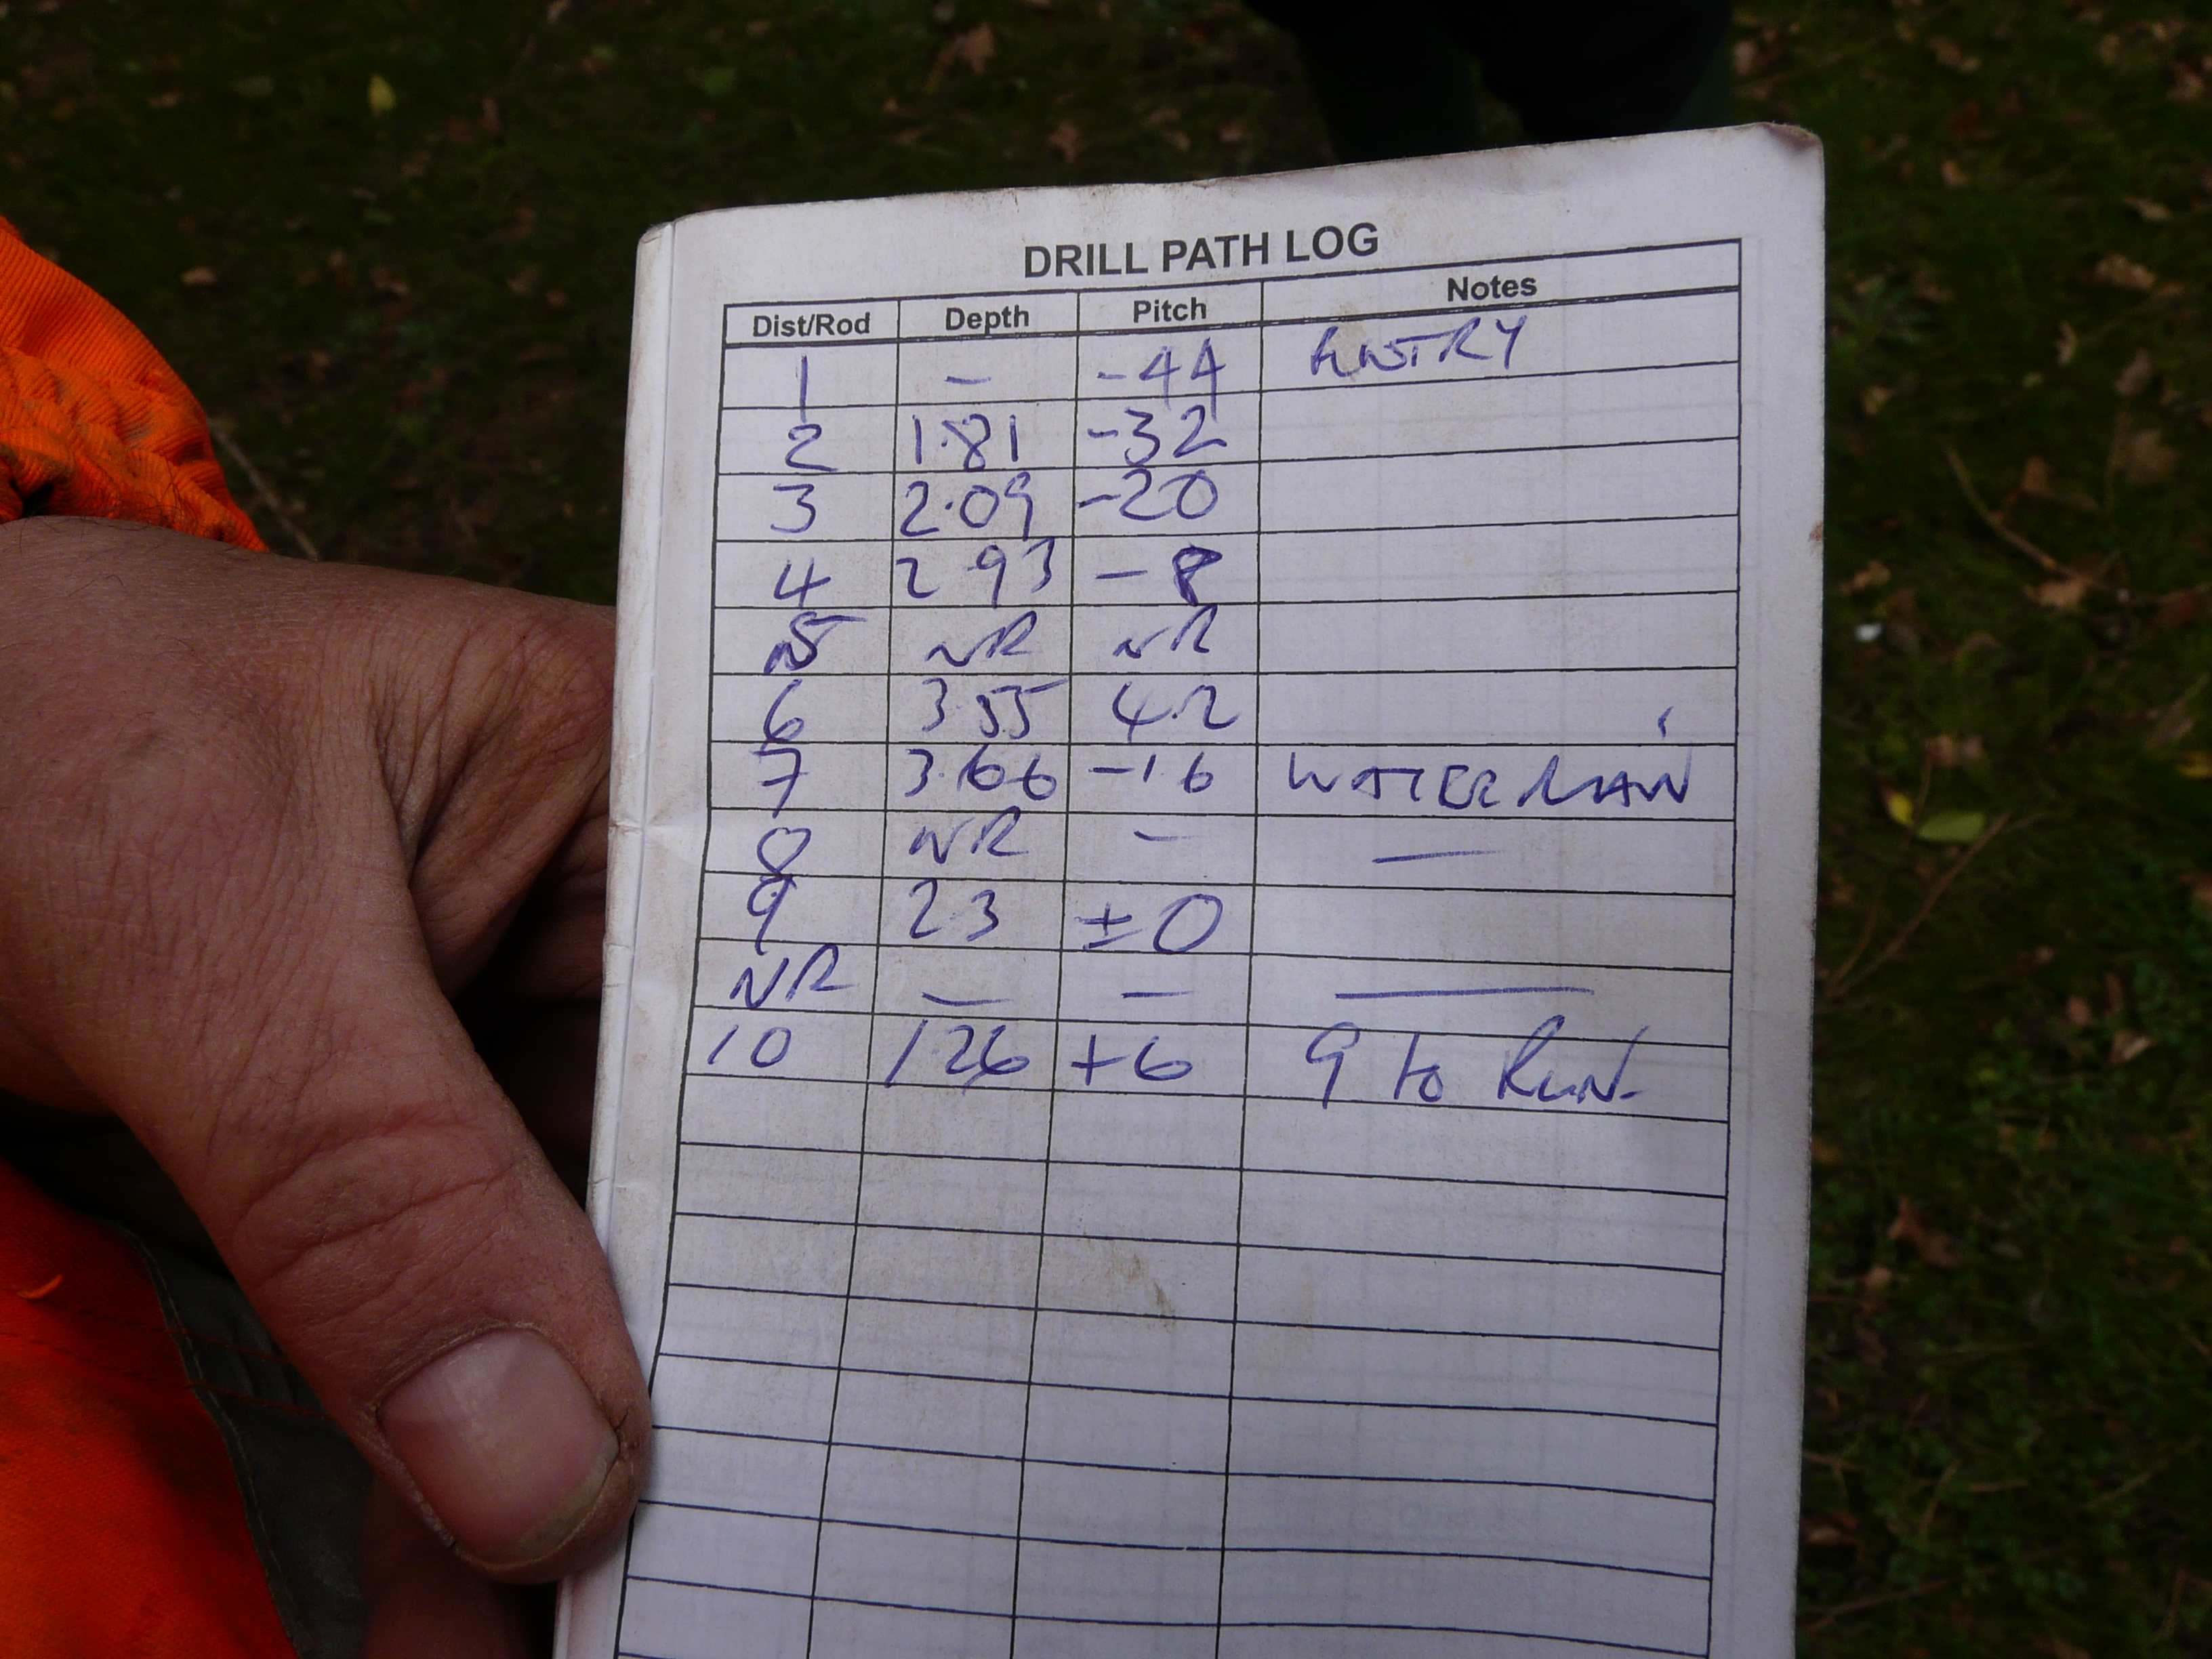 DRILL PATH LOG
Dist/Rod Depth Pitch Notes
1 - -44 ENTRY
2 1.81 -32
3 2.09 -20
4 2.93 -8
5 NR NR
6 3.55 4.2
7 3.66 -16 WATER MAIN
8 NR - -
9 2.3 ±0
NR - - -
10 1.26 +6 9 to RUN.